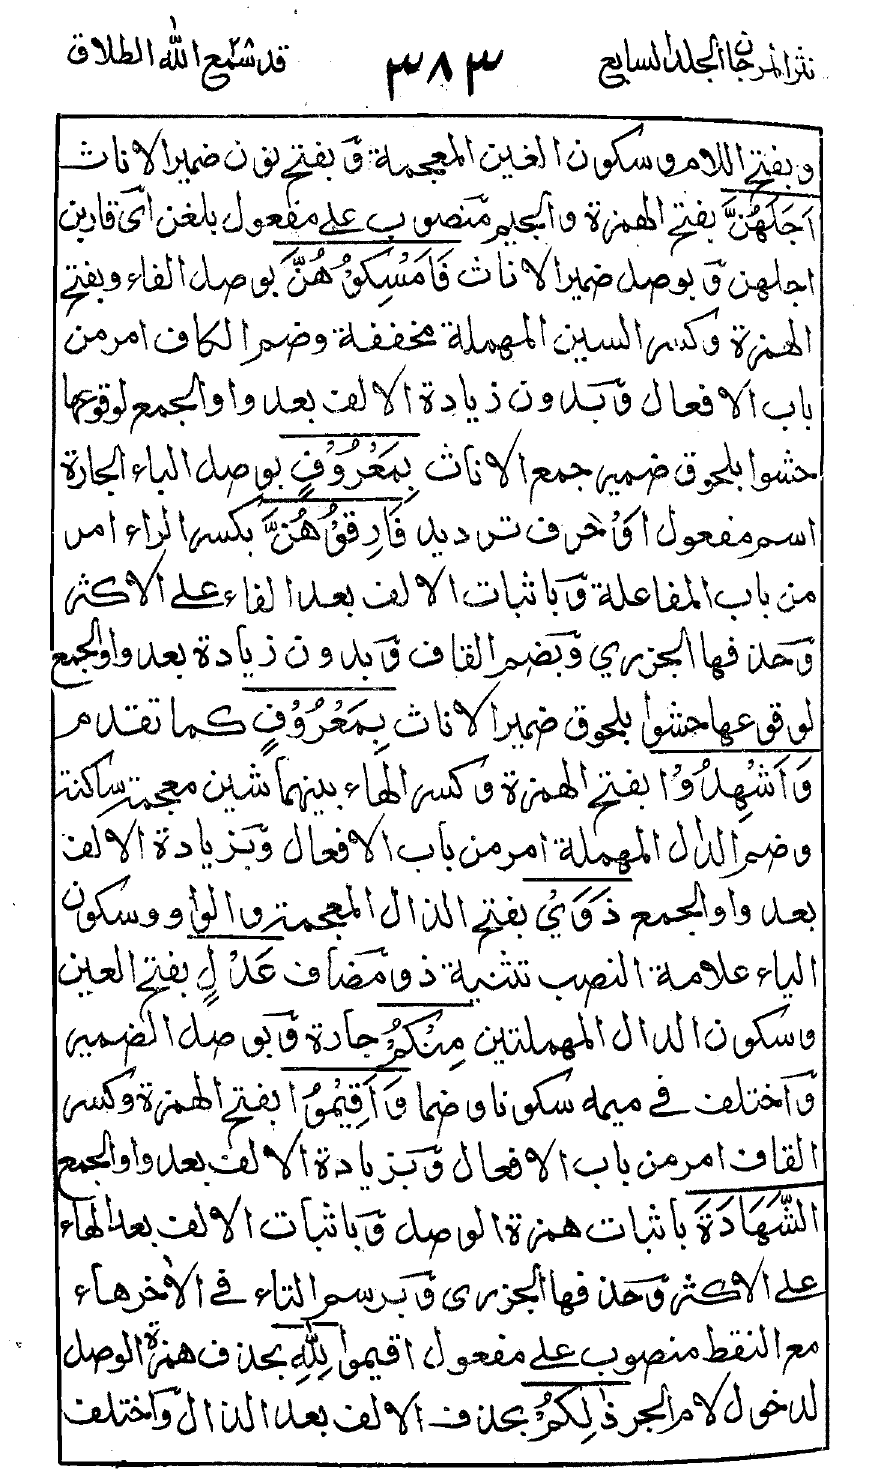 نثر المرجان الجلد السابع
٣٨٣
قد سمع الله الطلاق
وبفتح اللام وسكون الغين المعجمة وبفتح نون ضمير الاناث
اَجَلَهُنَّ بفتح الهمزة والجيم منصوب على مفعول بلغن اى قاربن
اجلهن وبوصل ضمير الاناث فَاَمْسِكُوْهُنَّ بوصل الفاء وبفتح
الهمزة وكسر السين المهملة مخففة وضم الكاف امر من
باب الافعال وبدون زيادة الالف بعد واو الجمع لوقوعها
حشوا بلحوق ضمير جمع الاناث بِمَعْرُوْفٍ بوصل الباء الجارة
اسم مفعول اَوْ حرف ترديد فَارِقُوْهُنَّ بكسر الراء امر
من باب المفاعلة وباثبات الالف بعد الفاء على الاكثر
وحذفها الجزري وبضم القاف وبدون زيادة بعد واو الجمع
لوقوعها حشوا بلحوق ضمير الاناث بِمَعْرُوْفٍ كما تقدم
وَاَشْهِدُوْا بفتح الهمزة وكسر الهاء بينهما شين معجمة ساكنة
وضم الدال المهملة امر من باب الافعال وبزيادة الالف
بعد واو الجمع ذَوَيْ بفتح الذال المعجمة والواو وسكون
الياء علامة النصب تثنية ذو مضاف عَدْلٍ بفتح العين
وسكون الدال المهملتين مِنْكُمْ جارة وبوصل الضمير
واختلف في ميمه سكونا وضما وَاَقِيْمُوا بفتح الهمزة وكسر
القاف امر من باب الافعال وبزيادة الالف بعد واو الجمع
الشَّهَادَةَ باثبات همزة الوصل وباثبات الالف بعد الهاء
على الاكثر وحذفها الجزرى وبرسم التاء في الاخر هاء
مع النقط منصوب على مفعول اقيموا لِلّٰهِ بحذف همزة الوصل
لدخول لام الجر ذٰلِكُمْ بحذف الالف بعد الذال واختلف